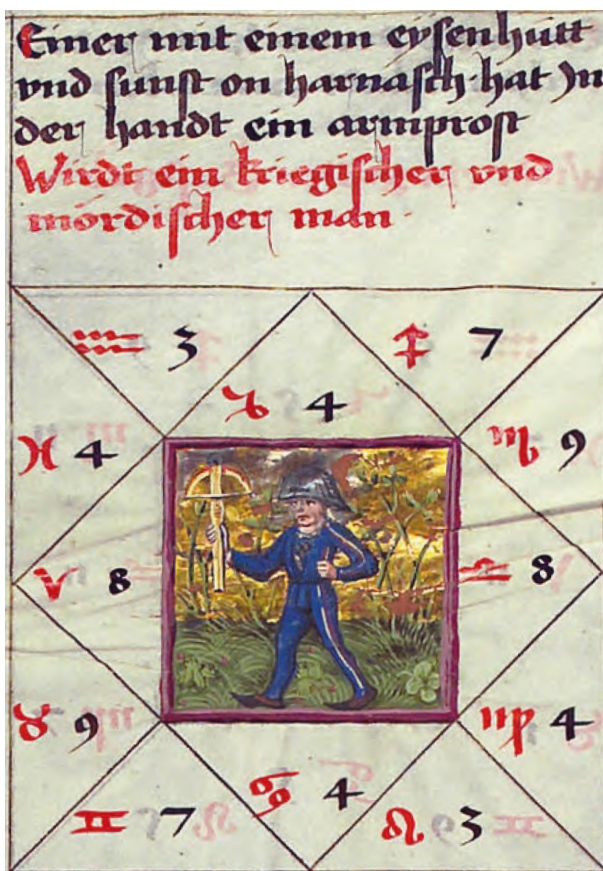 Einer mit einem eysenhutt
vnd sunst on harnasch hat Jn
der handt ein armprost
Wirdt ein kriegischer vnd
mordischer man ·
♒ 3 ♐ 7
♑ 4
♓ 4 ♏ 9
♈ 8 ♎ 8
♉ 9 ♍ 4
♋ 4
♊ 7 ♌ 3